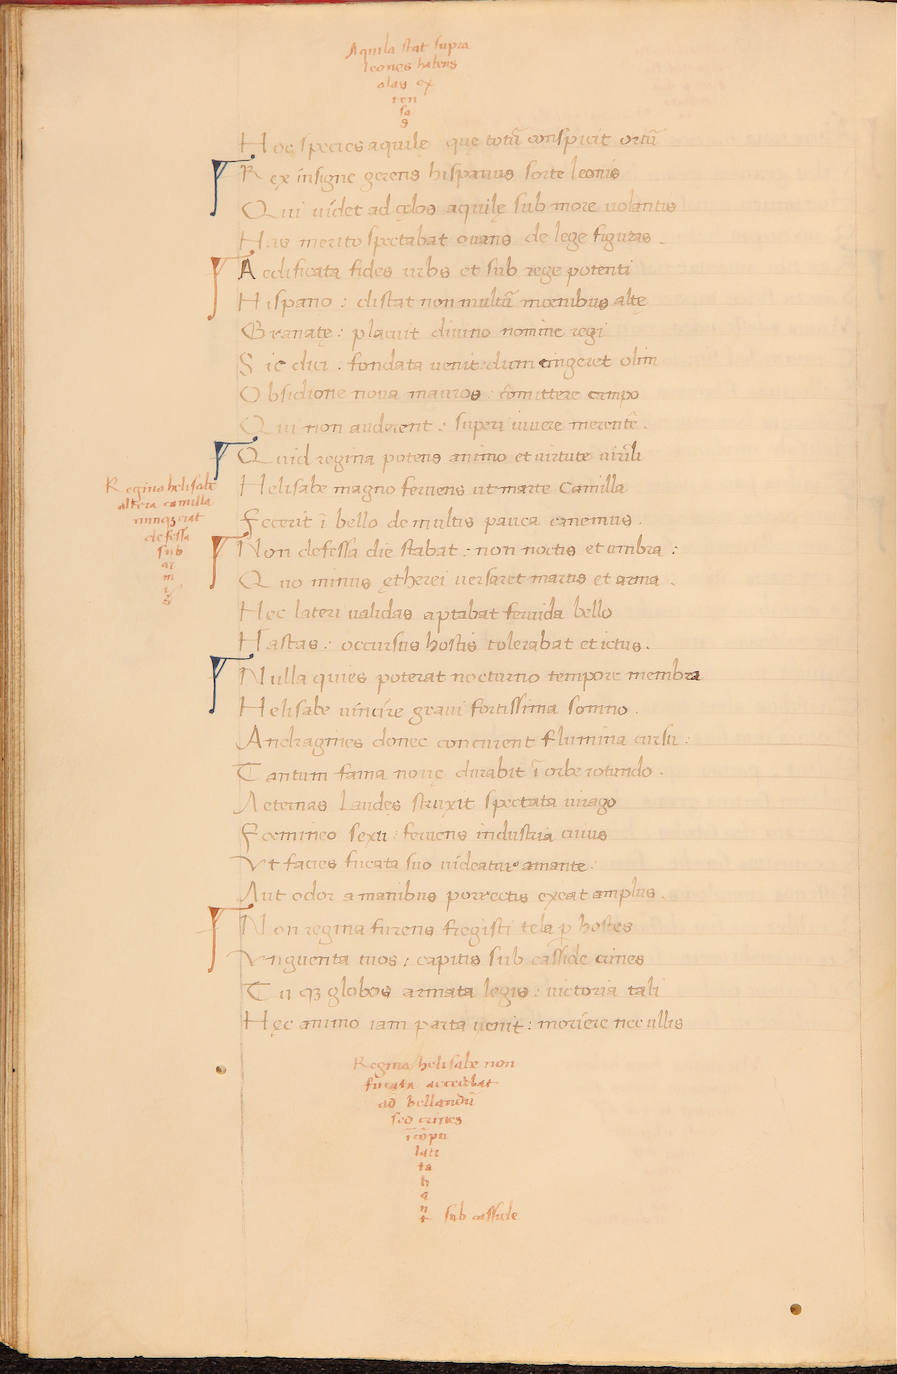 Aquila stat supra
leones habens
alas ex
ten
sa
s
Hoc species aquilę quę totū conspicit ortū
Rex insigne gerens hispanus forte leonis
Qui videt ad cęlos aquilę sub more volantis
Has merito spectabat ouans de lege figuras .
Aedificata fides urbs et sub rege potenti
Hispano : distat non multū moenibus altę
Granatę : placuit diuino nomine regi
Sic dici : fondata uenit dum cingeret olim
Obsidione noua mauros : cōmittere campo
Qui non auderent : superi uiuere merentē .
Quid regina potens animo et uirtute uirili
Helisabe magno feruens ut marte Camilla
Fecerit ī bello de multis pauca canemus .
Regina helisabe
altera camilla
nunq̃ erat
defessa
sub
ar
m
i
s
Non defessa die stabat : non noctis et umbra :
Quo minus ętherei uersaret martis et arma .
Hec lateri validas aptabat feruida bello
Hastas : occursus hostis tolerabat et ictus .
Nulla quies poterat nocturno tempore membra
Helisabe vincire graui fortissima somno .
Andragines donec concurent flumina cursu :
Tantum fama nouę durabit ī orbe rotundo .
Aeternas Laudes struxit spectata uirago
Foemineo sexu : feruens industria cuius
Vt facies fucata suo videatur amante :
Aut odor a manibus porrectis exeat amplus .
Non regina furens fregisti tela p hostes
Vnguenta tuos : capitis sub casside crines
Tu q3 globos armata legis : uictoria tali
Hęc animo iam parta uenit : moriere nec ullis
Regina helisabe non
fucata accedebat
ad bellandū
sed crines
īcōpu
lati
ta
b
a
n
t sub casside